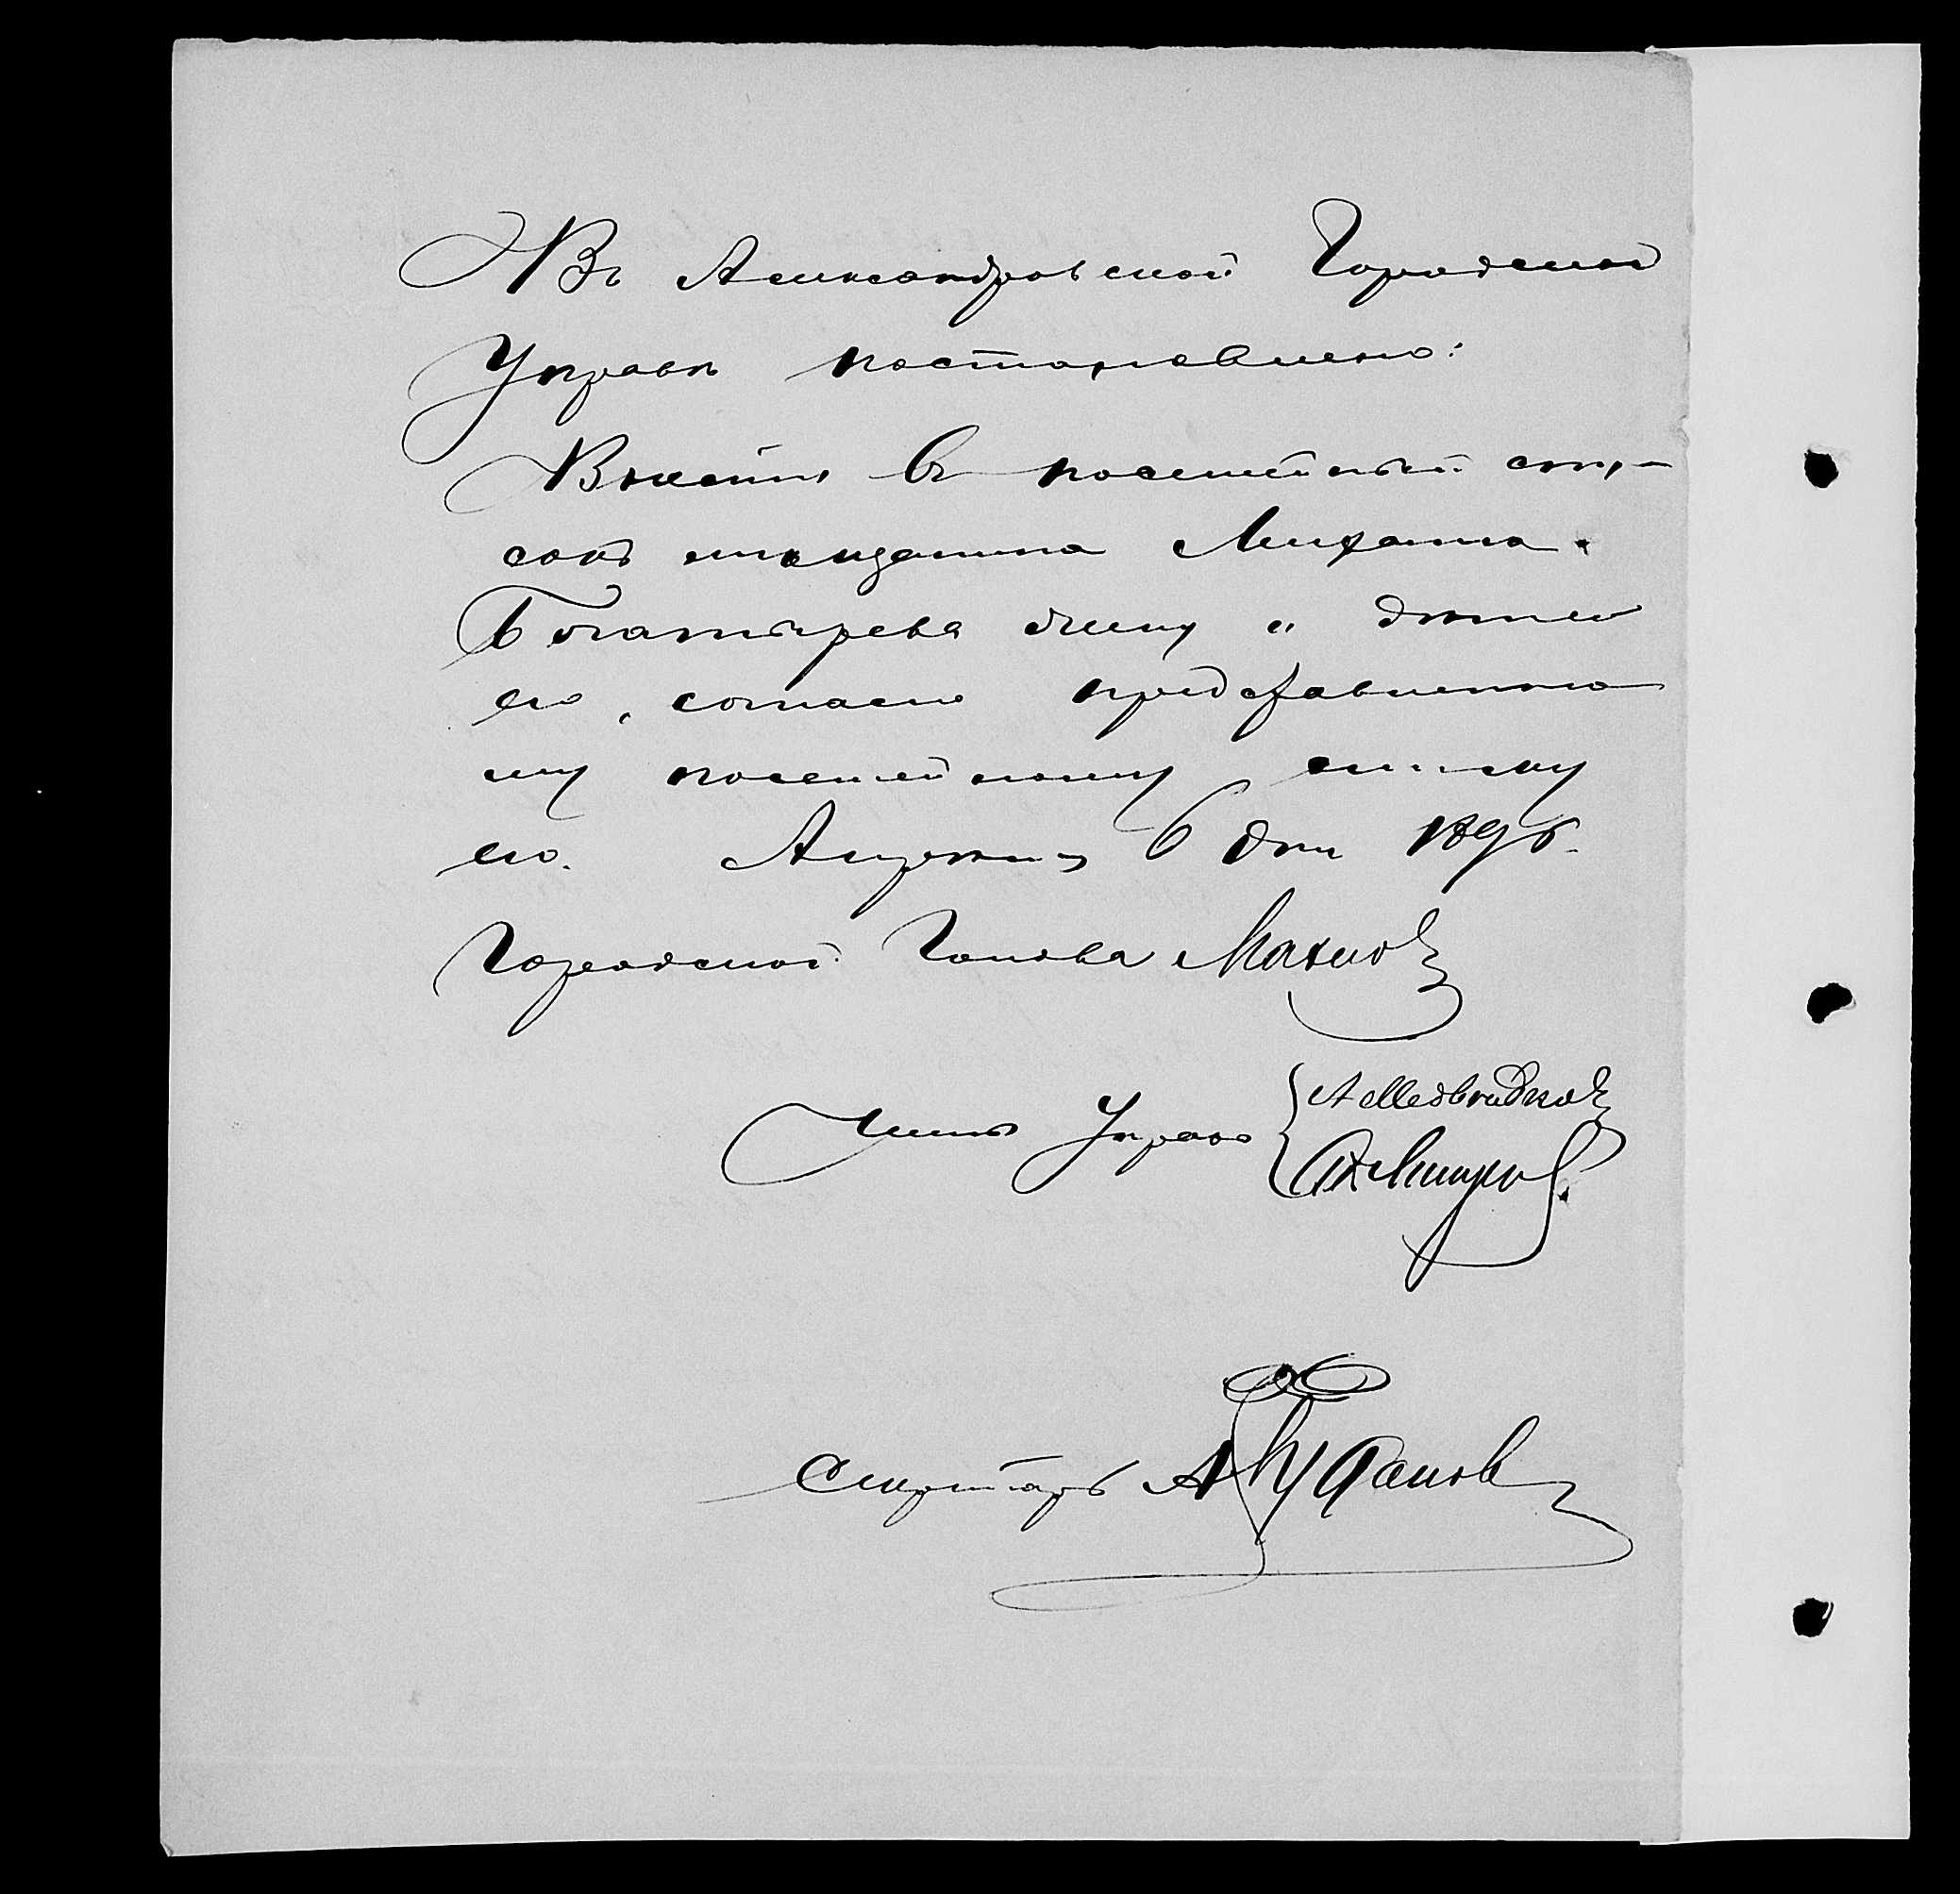 Въ Александровской Городской
Управѣ постановлено:
Внести въ посемейный спи-
сокъ мѣщанина Михаила
Богатырева жену и дѣтей
его, согласно представленно
му посемейному списку
его. Апрѣля 6 дня 189
Городской Голова Махно
Члены Управы { А Медвѣдко
Секретарь А